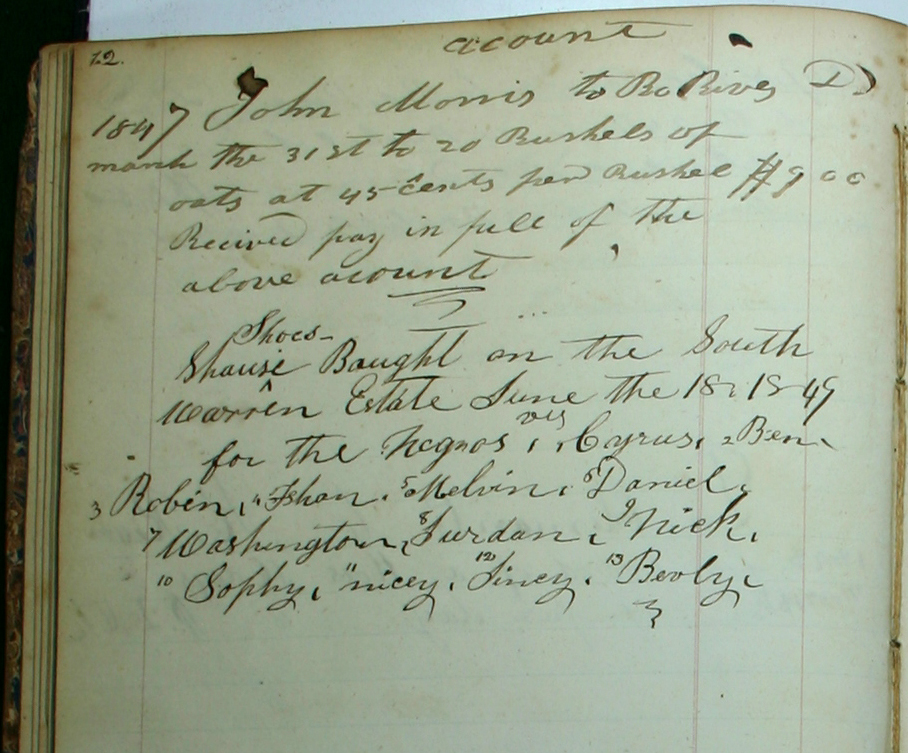 12.
acount
John Morris to Ro Rives D)
1847
march the 31st to 20 Bushels of
oats at 45 cents per Bushel $9 00
Recived pay in full of the
above acount
Shoes-
Shause Baught on the South
Warren Estate June the 18, 1849
for the Negros viz 1, Cyrus, 2 Ben
3 Robin, 4 Isham, 5 Melvin, 6 Daniel,
7 Washington, 8 Jurdan, 9 Nick,
10 Sophy, 11 nicey, 12 Jincy, 13 Bevly,